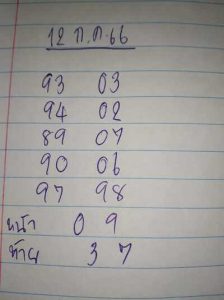 12 ก.ค.66
93 03
94 02
89 07
90 06
97 98
หน้า 0 9
ท้าย 3 7